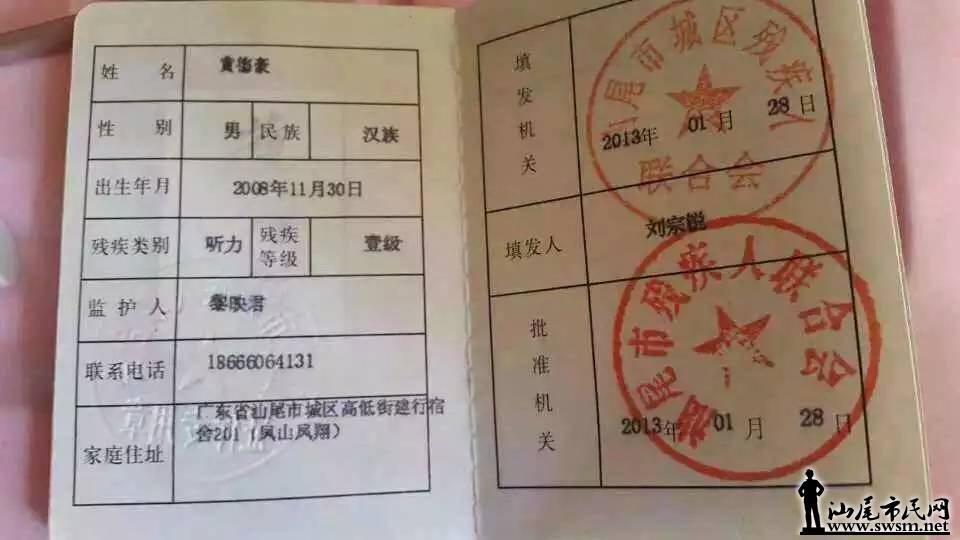 姓 名 黄德豪
性 别 男 民族 汉族
出生年月 2008年11月30日
残疾类别 听力 残疾等级 壹级
监护人 黎映君
联系电话 18666064131
家庭住址 广东省汕尾市城区高低街建行宿
舍201（凤山凤翔）
填发机关 汕尾市城区残疾人
联合会
2013年 01 月 28 日
填发人 刘宗锐
批准机关 汕尾市残疾人联合会
2013年 01 月 28 日
汕尾市民网
www.swsm.net